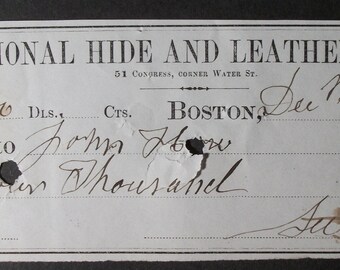 IONAL HIDE AND LEATHE
51 CONGRESS, CORNER WATER ST.
DLS., CTS. BOSTON, Dec
TO John
Thousand